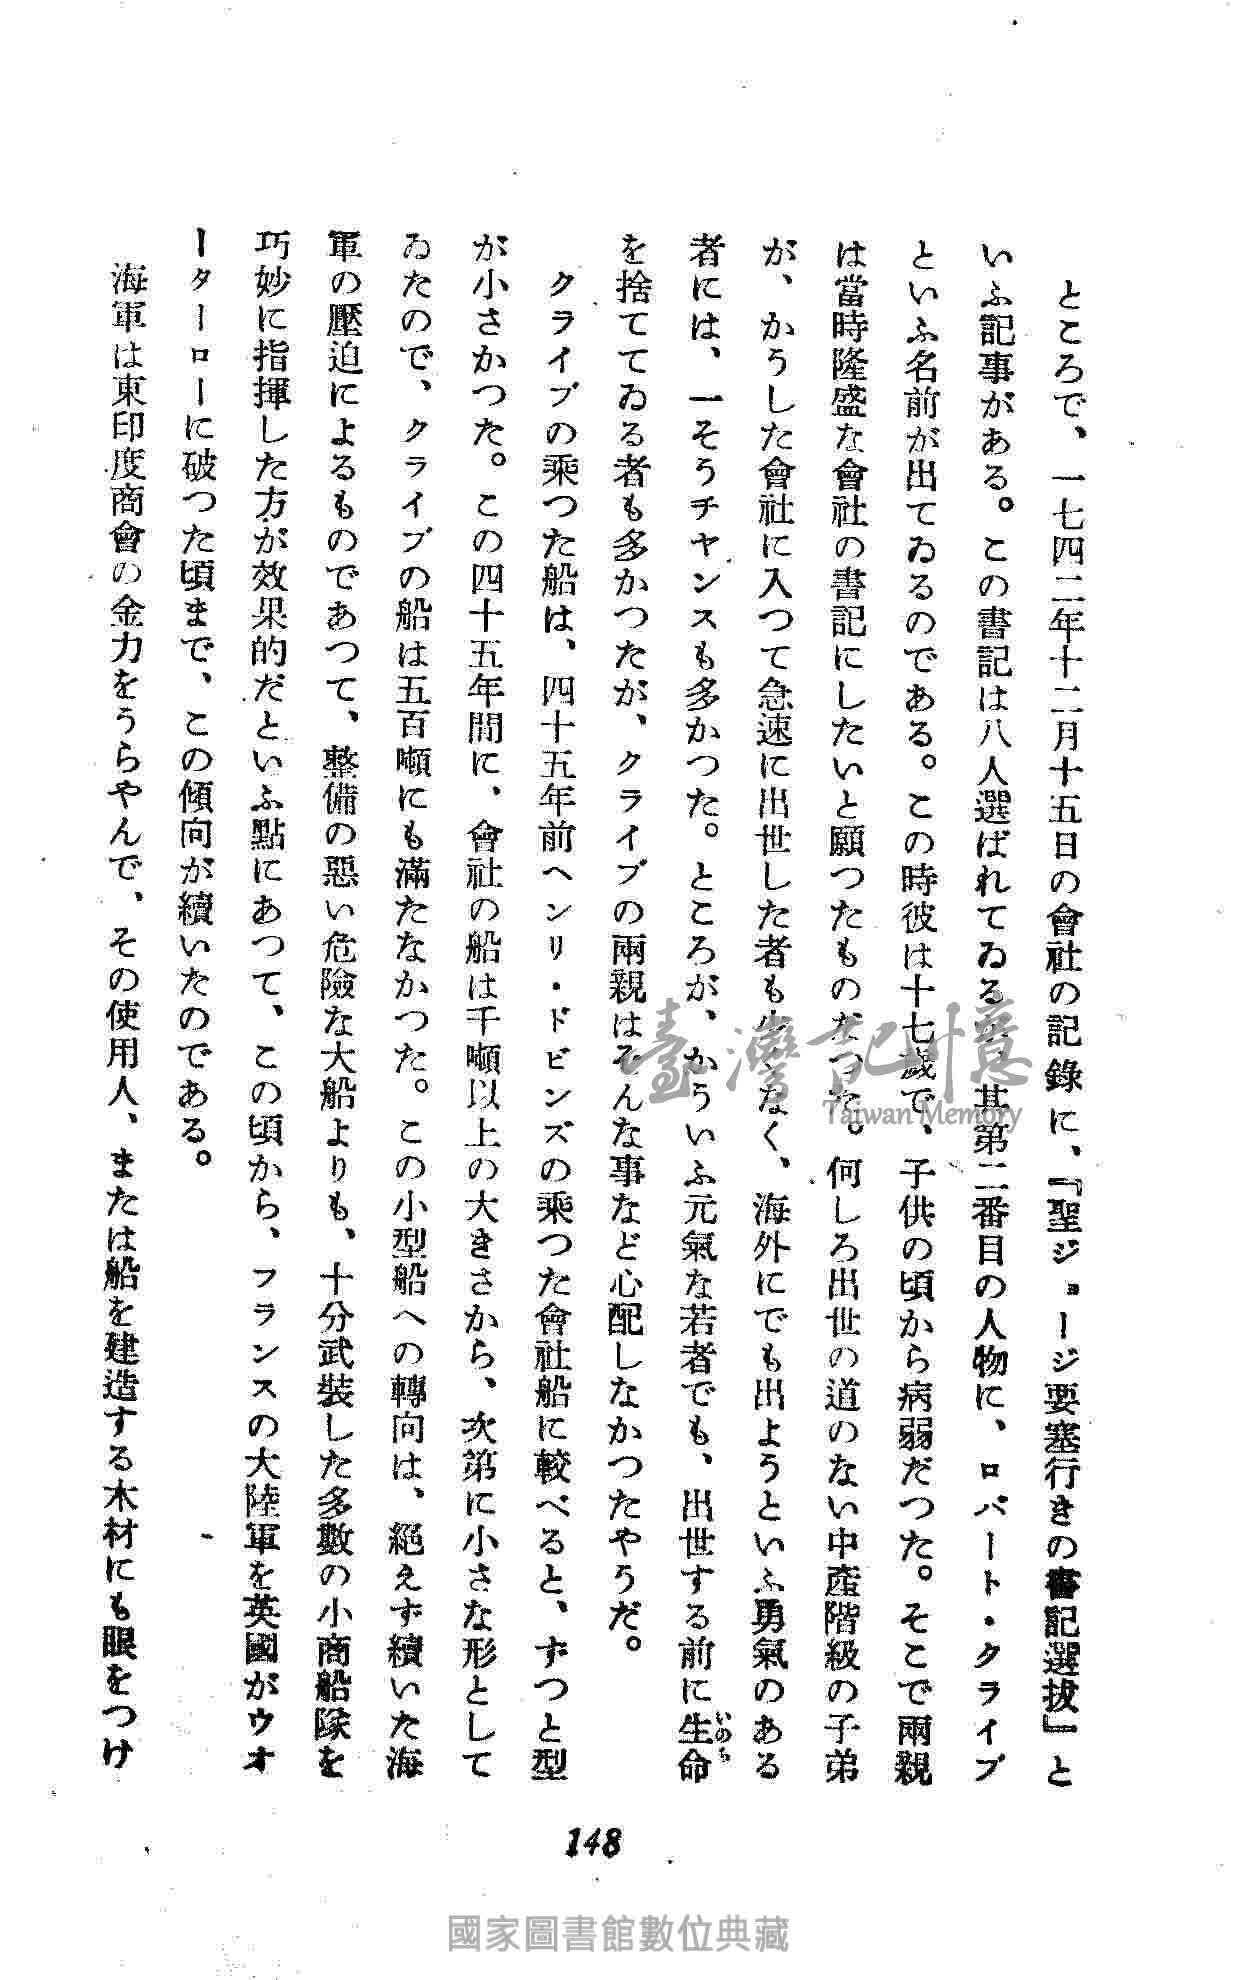 ところで、一七四二年十二月十五日の會社の記錄に、『聖ジョージ要塞行きの書記選拔』と
いふ記事がある。この書記は八人選ばれてゐる 其第二番目の人物に、ロバート・クライブ
といふ名前が出てゐるのである。この時彼は十七歲で、子供の頃から病弱だつた。そこで兩親
は當時隆盛な會社の書記にしたいと願つたものだつた。何しろ出世の道のない中產階級の子弟
が、かうした會社に入つて急速に出世した者も少くなく、海外にでも出ようといふ勇氣のある
者には、一そうチャンスも多かつた。ところが、かういふ元氣な若者でも、出世する前に生命
いのち
を捨ててゐる者も多かつたが、クライブの兩親はそんな事など心配しなかつたやうだ。
クライブの乘つた船は、四十五年前ヘンリ・ドビンズの乘つた會社船に較べると、ずつと型
が小さかつた。この四十五年間に、會社の船は千噸以上の大きさから、次第に小さな形として
ゐたので、クライブの船は五百噸にも滿たなかつた。この小型船への轉向は、絕えず續いた海
軍の壓迫によるものであつて、整備の惡い危險な大船よりも、十分武裝した多數の小商船隊を
巧妙に指揮した方が效果的だといふ點にあつて、この頃から、フランスの大陸軍を英國がウオ
ーターローに破つた頃まで、この傾向が續いたのである。
海軍は東印度商會の金力をうらやんで、その使用人、または船を建造する木材にも眼をつけ
148
臺灣記憶
Taiwan Memory
國家圖書館數位典藏